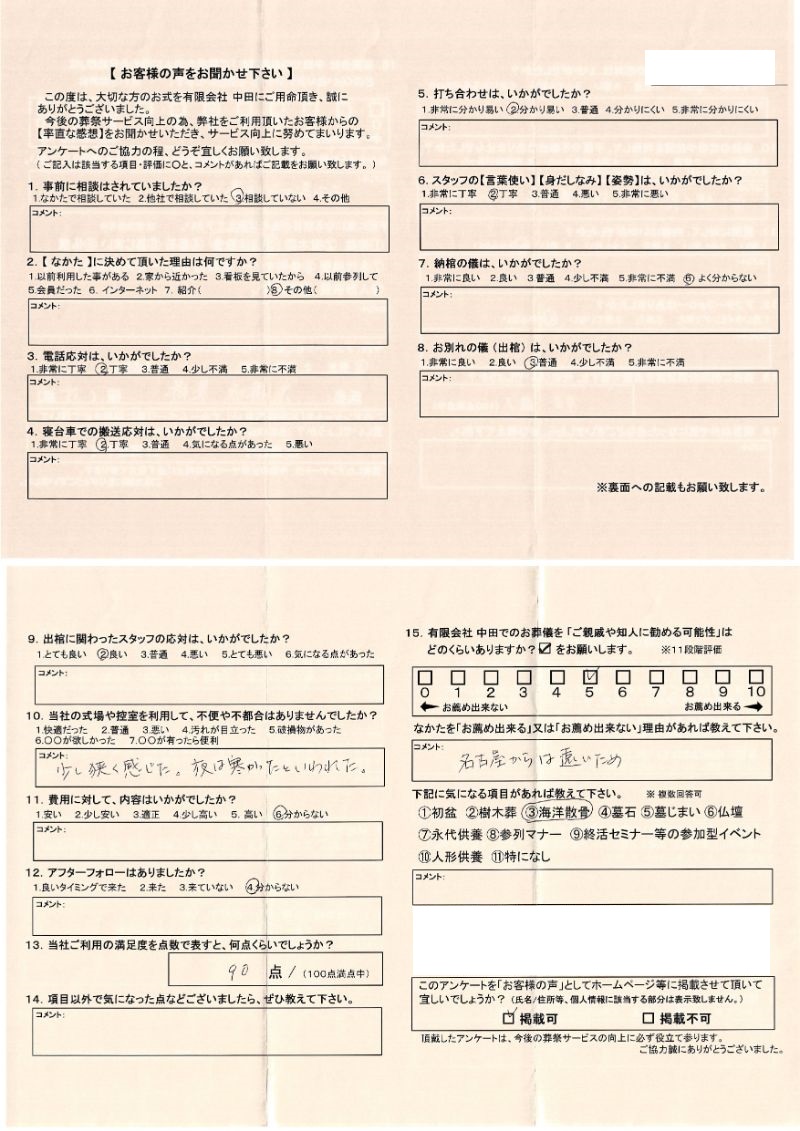 【 お客様の声をお聞かせ下さい 】
この度は、大切な方のお式を有限会社 中田にご用命頂き、誠に
ありがとうございました。
今後の葬祭サービス向上の為、弊社をご利用頂いたお客様からの
【率直な感想】をお聞かせいただき、サービス向上に努めてまいります。
アンケートへのご協力の程、どうぞ宜しくお願い致します。
( ご記入は該当する項目・評価に〇と、コメントがあればご記載をお願い致します。 )
1. 事前に相談はされていましたか？
1.なかたで相談していた 2.他社で相談していた ③相談していない 4.その他
コメント:
2.【 なかた 】に決めて頂いた理由は何ですか？
1.以前利用した事がある 2.家から近かった 3.看板を見ていたから 4.以前参列して
5.会員だった 6. インターネット 7. 紹介( )⑧その他( )
コメント:
3. 電話応対は、いかがでしたか？
1.非常に丁寧 ②丁寧 3.普通 4.少し不満 5.非常に不満
コメント:
4. 寝台車での搬送応対は、いかがでしたか？
1.非常に丁寧 ②丁寧 3.普通 4.気になる点があった 5.悪い
コメント:
5. 打ち合わせは、いかがでしたか？
1.非常に分かり易い ②分かり易い 3.普通 4.分かりにくい 5.非常に分かりにくい
コメント:
6. スタッフの【言葉使い】【身だしなみ】【姿勢】は、いかがでしたか？
1.非常に丁寧 ②丁寧 3.普通 4.悪い 5.非常に悪い
コメント:
7. 納棺の儀は、いかがでしたか？
1.非常に良い 2.良い 3 普通 4.少し不満 5.非常に不満 ⑥よく分からない
コメント:
8. お別れの儀（出棺）は、いかがでしたか？
1.非常に良い 2.良い ③普通 4.少し不満 5.非常に不満
コメント:
※裏面への記載もお願い致します。
9. 出棺に関わったスタッフの応対は、いかがでしたか？
1.とても良い ②良い 3.普通 4.悪い 5.とても悪い 6.気になる点があった
コメント:
10. 当社の式場や控室を利用して、不便や不都合はありませんでしたか？
1.快適だった 2.普通 3.悪い 4.汚れが目立った 5.破損物があった
6.〇〇が欲しかった 7.〇〇が有ったら便利
コメント:
少し狭く感じた。夜は寒かったといわれた。
11. 費用に対して、内容はいかがでしたか？
1.安い 2.少し安い 3.適正 4.少し高い 5. 高い ⑥分からない
コメント:
12. アフターフォローはありましたか？
1.良いタイミングで来た 2.来た 3.来ていない ④分からない
コメント:
13. 当社ご利用の満足度を点数で表すと、何点くらいでしょうか？
90 点 / (100点満点中)
14. 項目以外で気になった点などございましたら、ぜひ教えて下さい。
コメント:
15. 有限会社 中田でのお葬儀を「ご親戚や知人に勧める可能性」は
どのくらいありますか？☑ をお願いします。 ※11段階評価
0 1 2 3 4 5 6 7 8 9 10
← お薦め出来ない お薦め出来る →
なかたを「お薦め出来る」又は「お薦め出来ない」理由があれば教えて下さい。
コメント:
名古屋からは遠いため
下記に気になる項目があれば教えて下さい。 ※ 複数回答可
①初盆 ②樹木葬 ③海洋散骨 ④墓石 ⑤墓じまい ⑥仏壇
⑦永代供養 ⑧参列マナー ⑨終活セミナー等の参加型イベント
⑩人形供養 ⑪特になし
コメント:
このアンケートを「お客様の声」としてホームページ等に掲載させて頂いて
宜しいでしょうか？ (氏名/住所等、個人情報に該当する部分は表示致しません。)
☑ 掲載可 □ 掲載不可
頂戴したアンケートは、今後の葬祭サービスの向上に必ず役立て参ります。
ご協力誠にありがとうございました。